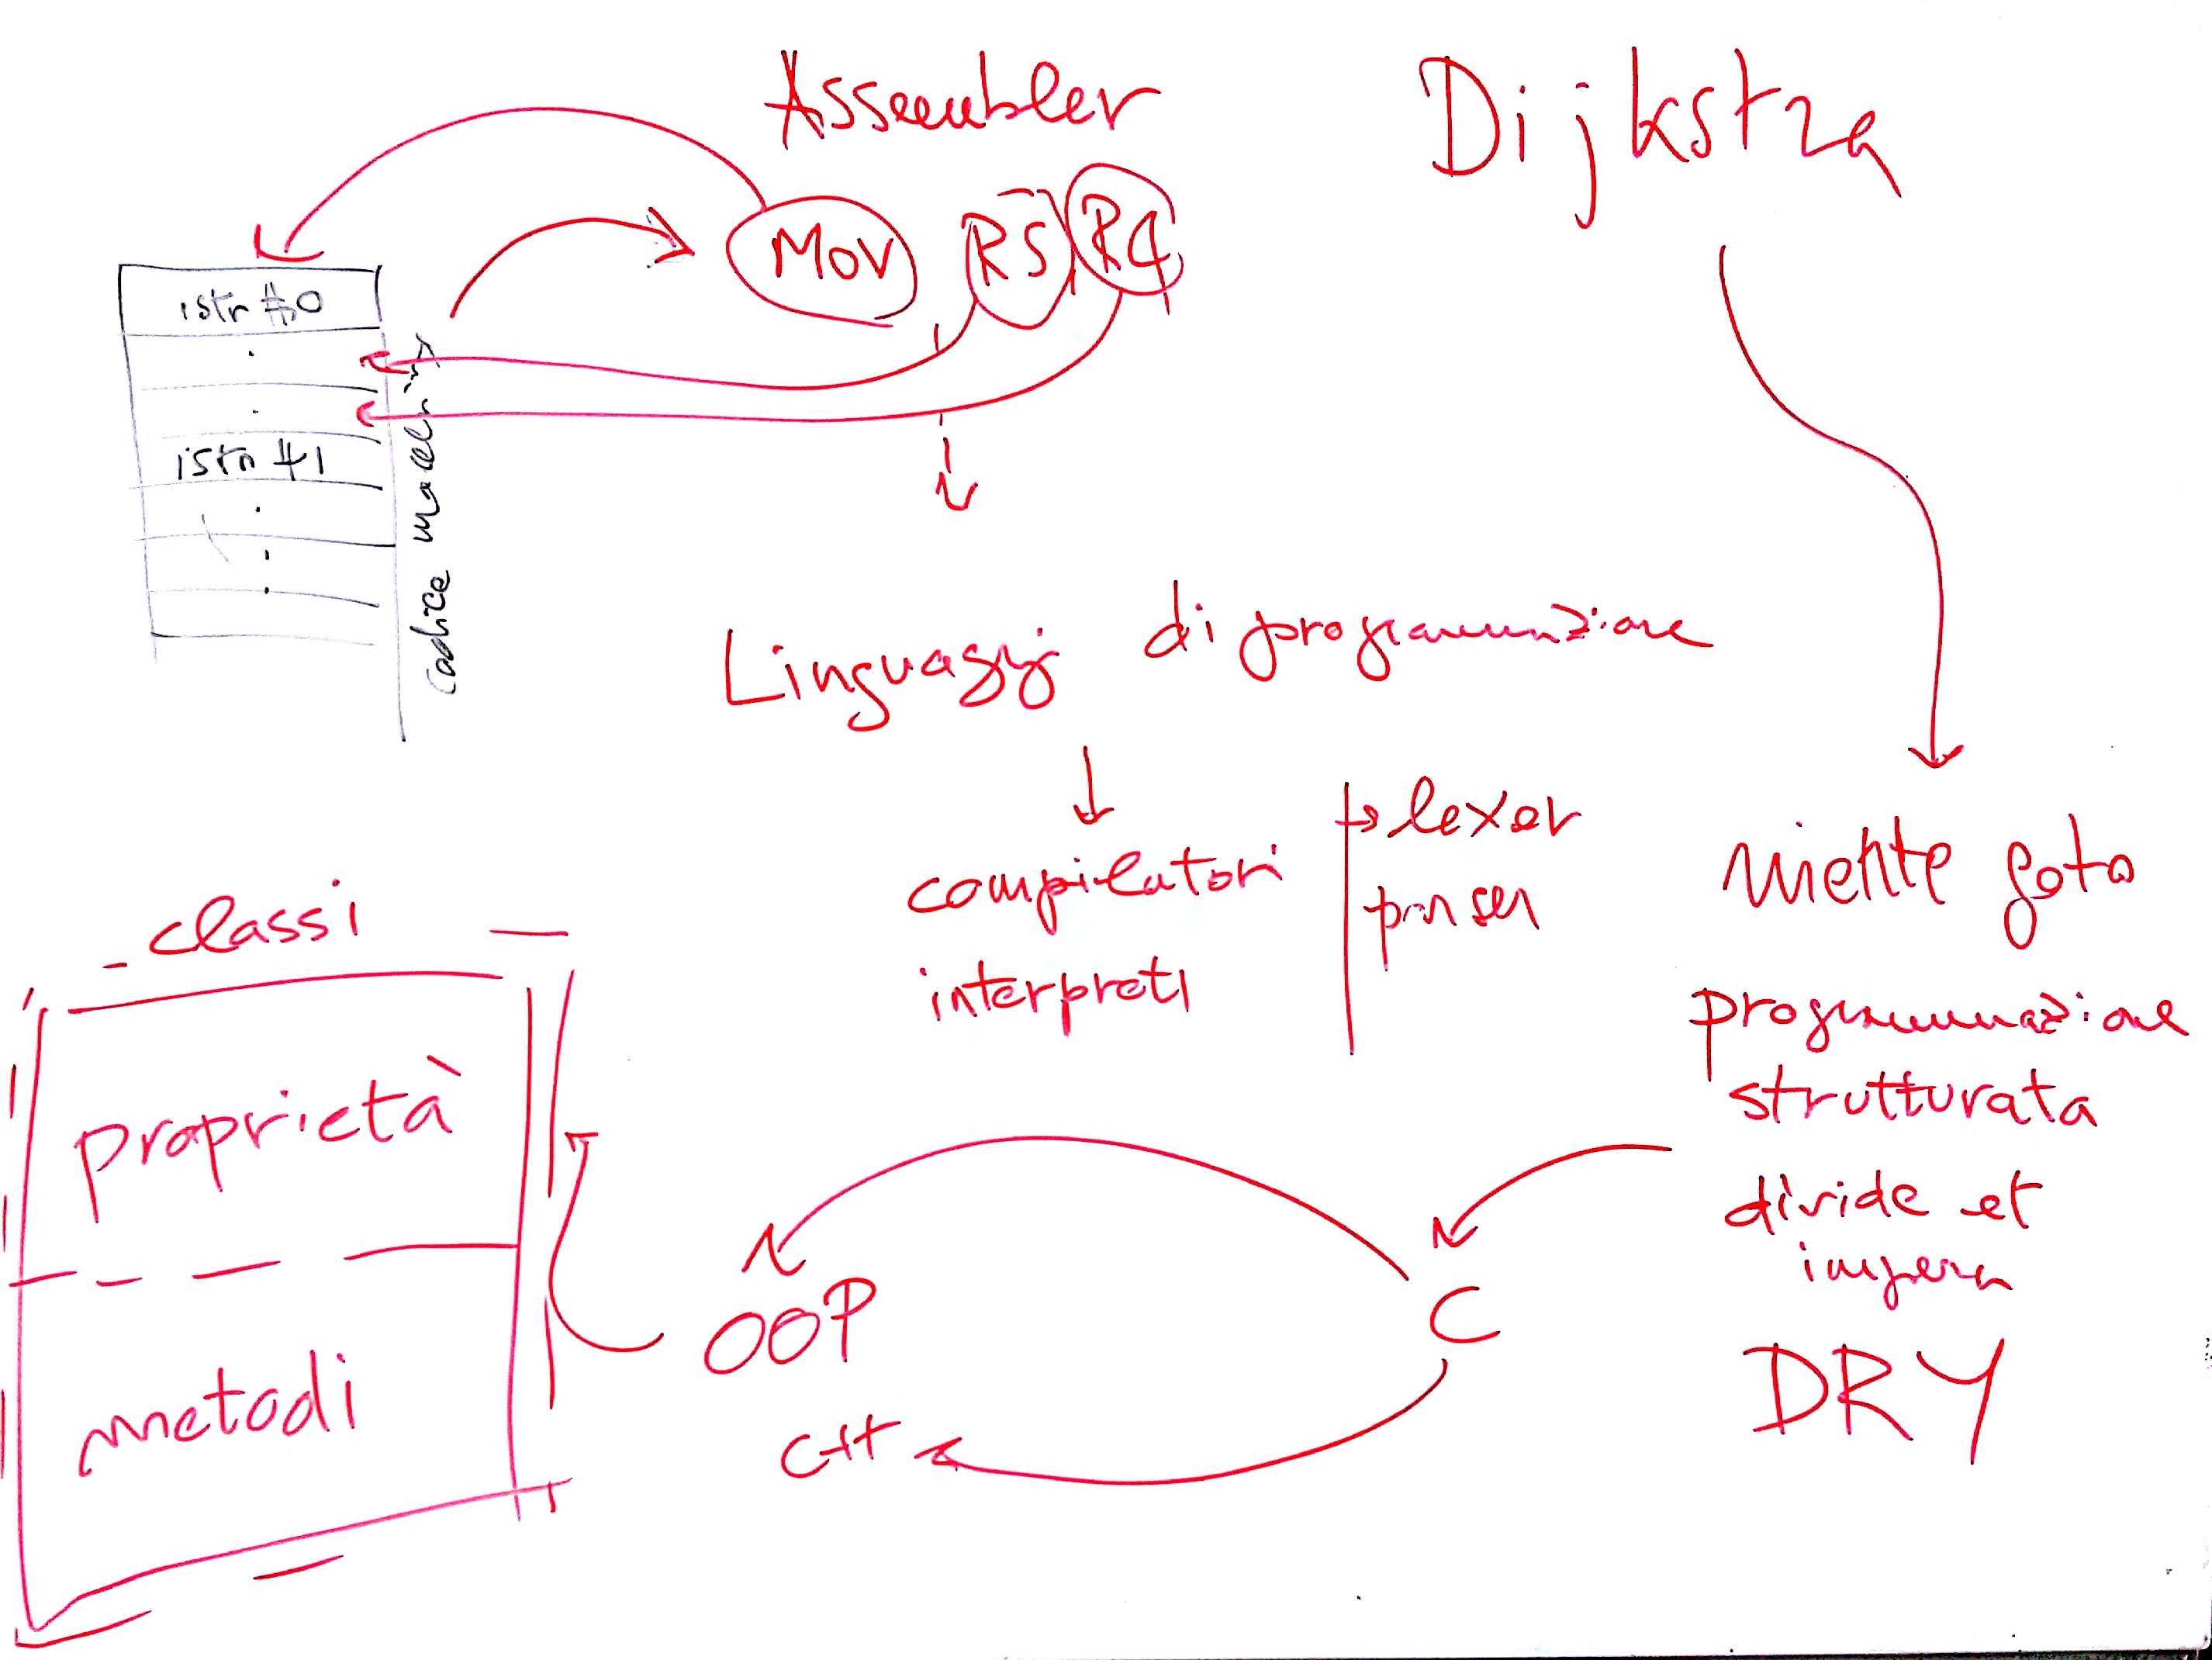 Assembler
Dijkstra
MOV R5, R4
istr #0
istr #1
codice macchina
Linguaggi di programmazione
compilatori
interpreti
lexer
parser
niente goto
programmazione
strutturata
divide et
impera
DRY
C
OOP
C++
classi
proprietà
metodi